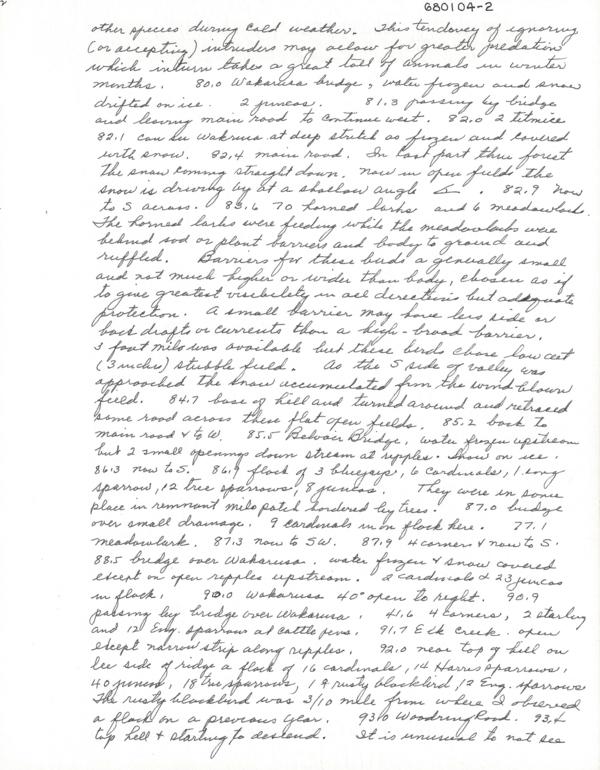 680104-2
other species during cold weather. This tendency of ignoring
(or accepting) intruders may allow for greater predation
which inturn takes a great toll of animals in winter
months. 80.0 Wakarusa bridge, water frozen and snow
drifted on ice. 2 juncos. 81.3 passing by bridge
and leaving main road to continue west. 82.0 2 titmice
82.1 can see Wakrusa at deep stretch as frozen and covered
with snow. 82.4 main road. In last part thru forest
the snow coming straight down. Now in open fields the
snow is driving by at a shallow angle. 82.9 now
to S across. 83.6 70 horned larks and 6 meadowlarks.
The horned larks were feeding while the meadowlarks were
behind sod or plant barriers and body to ground and
ruffled. Barriers for these birds a generally small
and not much higher or wider than body, chosen as if
to give greatest visibility in all directions but adequate
protection. A small barrier may have less side or
back drafts or currents than a high-broad barrier.
3 foot milo was available but these birds chose low cut
(3 inches) stubble field. As the S side of valley was
approached the snow accumulated from the wind blown
field. 84.7 base of hill and turned around and retraced
same road across these flat open fields. 85.2 back to
main road & to W. 85.5 Belvoir Bridge, water frozen upstream
but 2 small openings down stream at ripples. Snow on ice.
86.3 now to S. 86.9 flock of 3 bluejays, 6 cardinals, 1 song
sparrow, 12 tree sparrows, 8 juncos. They were in some
place in remnant milo patch bordered by trees. 87.0 bridge
over small drainage. 9 cardinals in flock here. 77.1
meadowlark. 87.3 now to SW. 87.9 4 corners & now to S.
88.5 bridge over Wakarusa. water frozen & snow covered
except on open ripples upstream. 2 cardinals & 23 juncos
in flock. 90.0 Wakarusa 40° open to right. 90.9
passing by bridge over Wakarusa. 41.6 4 corners, 2 starling
and 12 Eng. sparrows at cattle pens. 91.7 Elk Creek. open
except narrow strip along ripples. 92.0 near top of hill on
lee side of ridge a flock of 16 cardinals, 14 Harris sparrows,
40 juncos, 18 tree sparrows, 1 rusty blackbird, 12 Eng. sparrows
The rusty blackbird was 3/10 mile from where I observed
a flock on a previous year. 93.0 Woodring Road. 93.4
top hill & starting to descend. It is unusual to not see